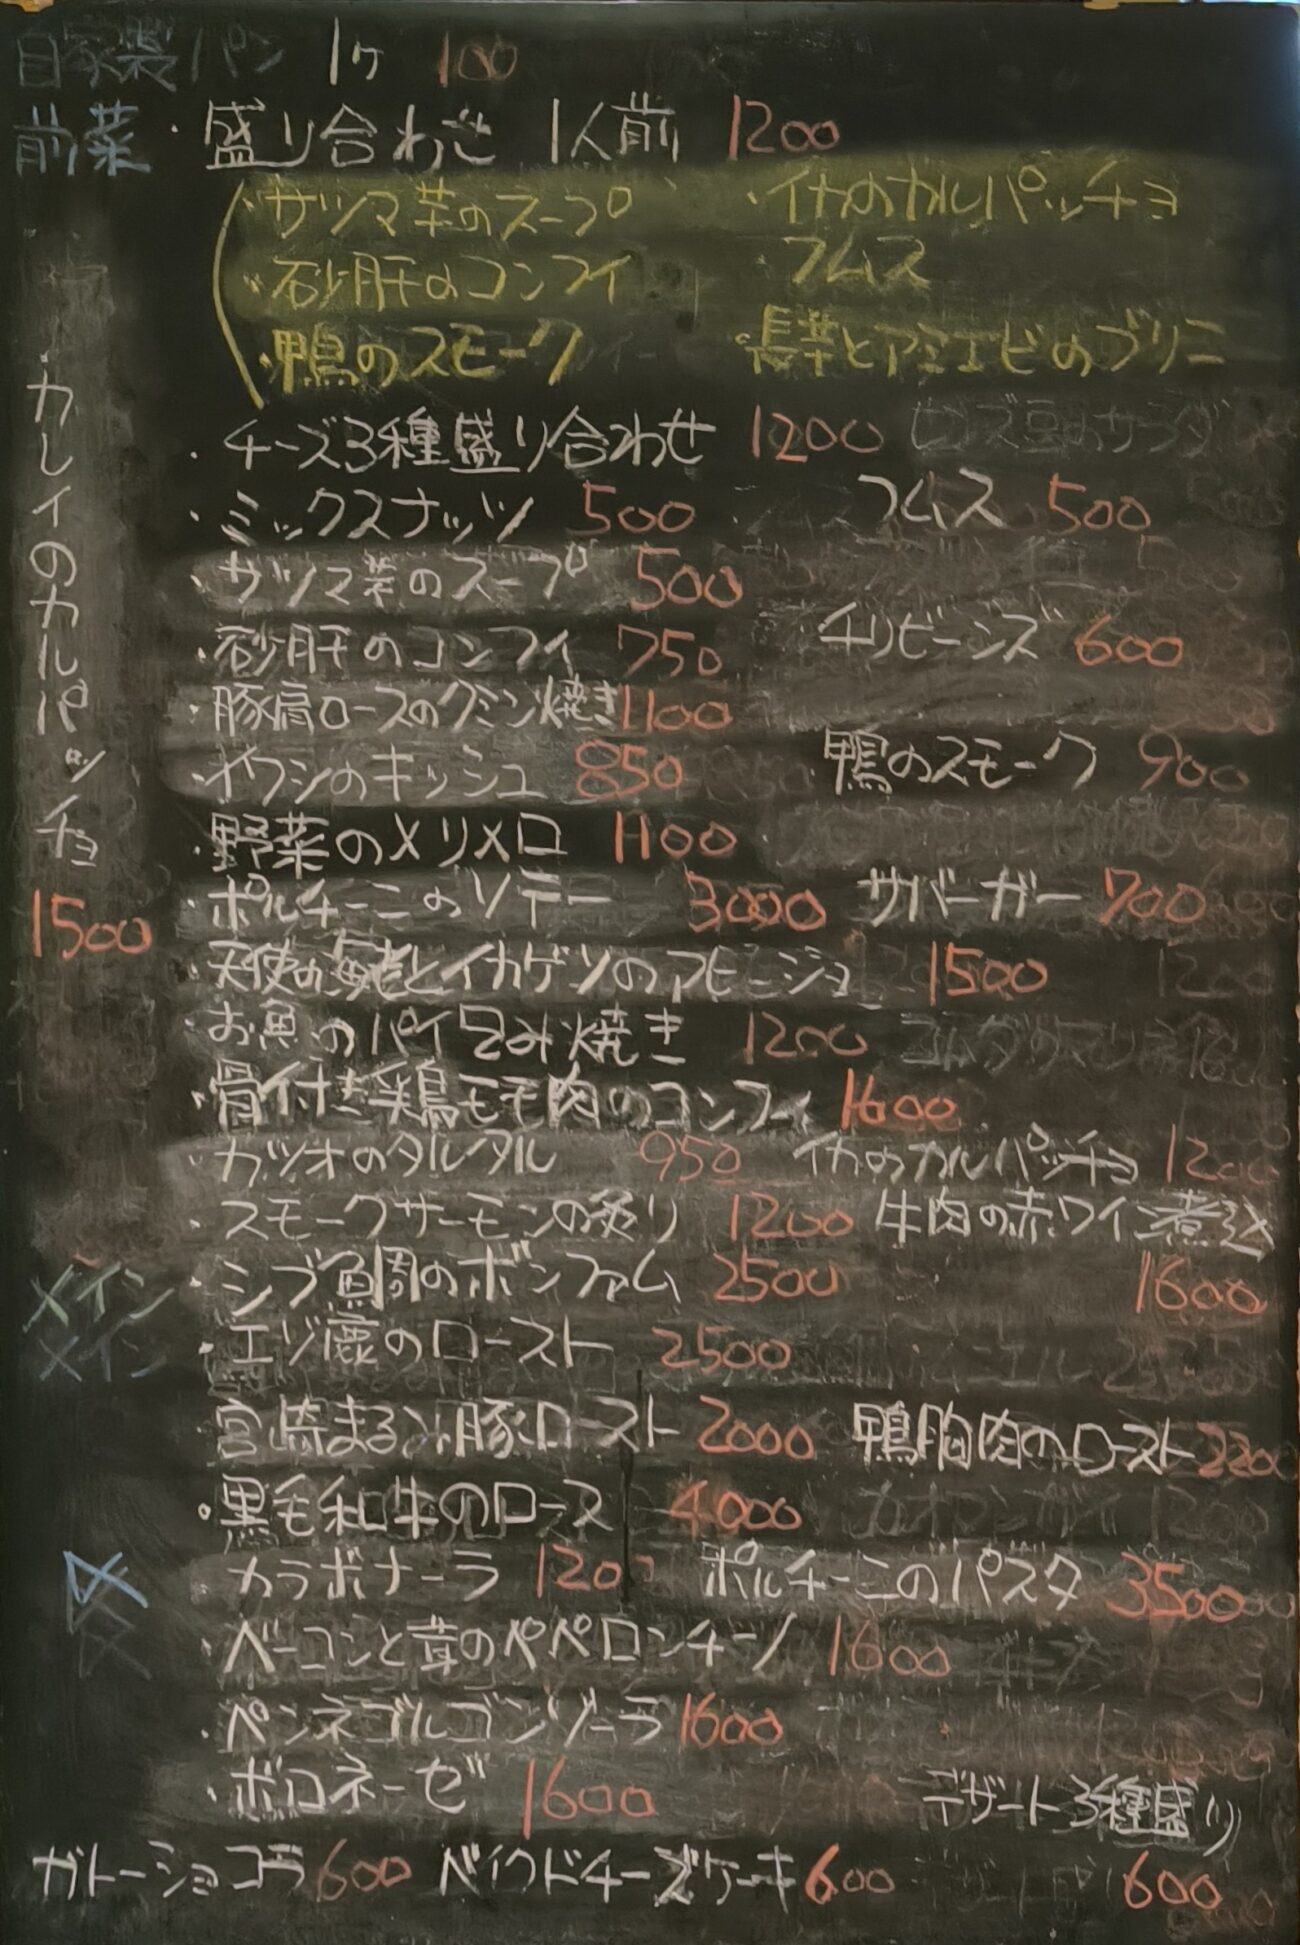 自家製パン 1ヶ 100
前菜・盛り合わせ 1人前 1200
・サツマ芋のスープ ・イカのカルパッチョ
・砂肝のコンフィ ・フムス
・鴨のスモーク ・長芋とアミエビのブリニ
・カレイのカルパッチョ
1500
・チーズ3種盛り合わせ 1200
・ミックスナッツ 500 フムス 500
・サツマ芋のスープ 500
・砂肝のコンフィ 750 チリビーンズ 600
・豚肩ロースのクミン焼き 1100
・イワシのキッシュ 850 鴨のスモーク 900
・野菜のメリメロ 1100
・ポルチーニのソテー 3000 サバーガー 700
・天使の海老とイカゲソのアヒージョ 1500
・お魚のパイ包み焼き 1200
・骨付き鶏モモ肉のコンフィ 1600
・カツオのタルタル 950 イカのカルパッチョ 1200
・スモークサーモンの炙り 1200 牛肉の赤ワイン煮込
1600
メイン ・シブ鯛のボンファム 2500
メイン ・エゾ鹿のロースト 2500
・宮崎まるみ豚ロースト 2000 鴨胸肉のロースト 2200
・黒毛和牛のロース 4000
〆 カラボナーラ 120 ポルチーニのパスタ 3500
・ベーコンと茸のペペロンチーノ 1600
・ペンネゴルゴンゾーラ 1600
・ボロネーゼ 1600
デザート3種盛り
600
ガトーショコラ 600 ベイクドチーズケーキ 600